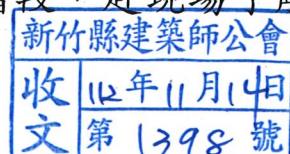 新竹縣建築師公會
收文
112年11月14日
第1398號